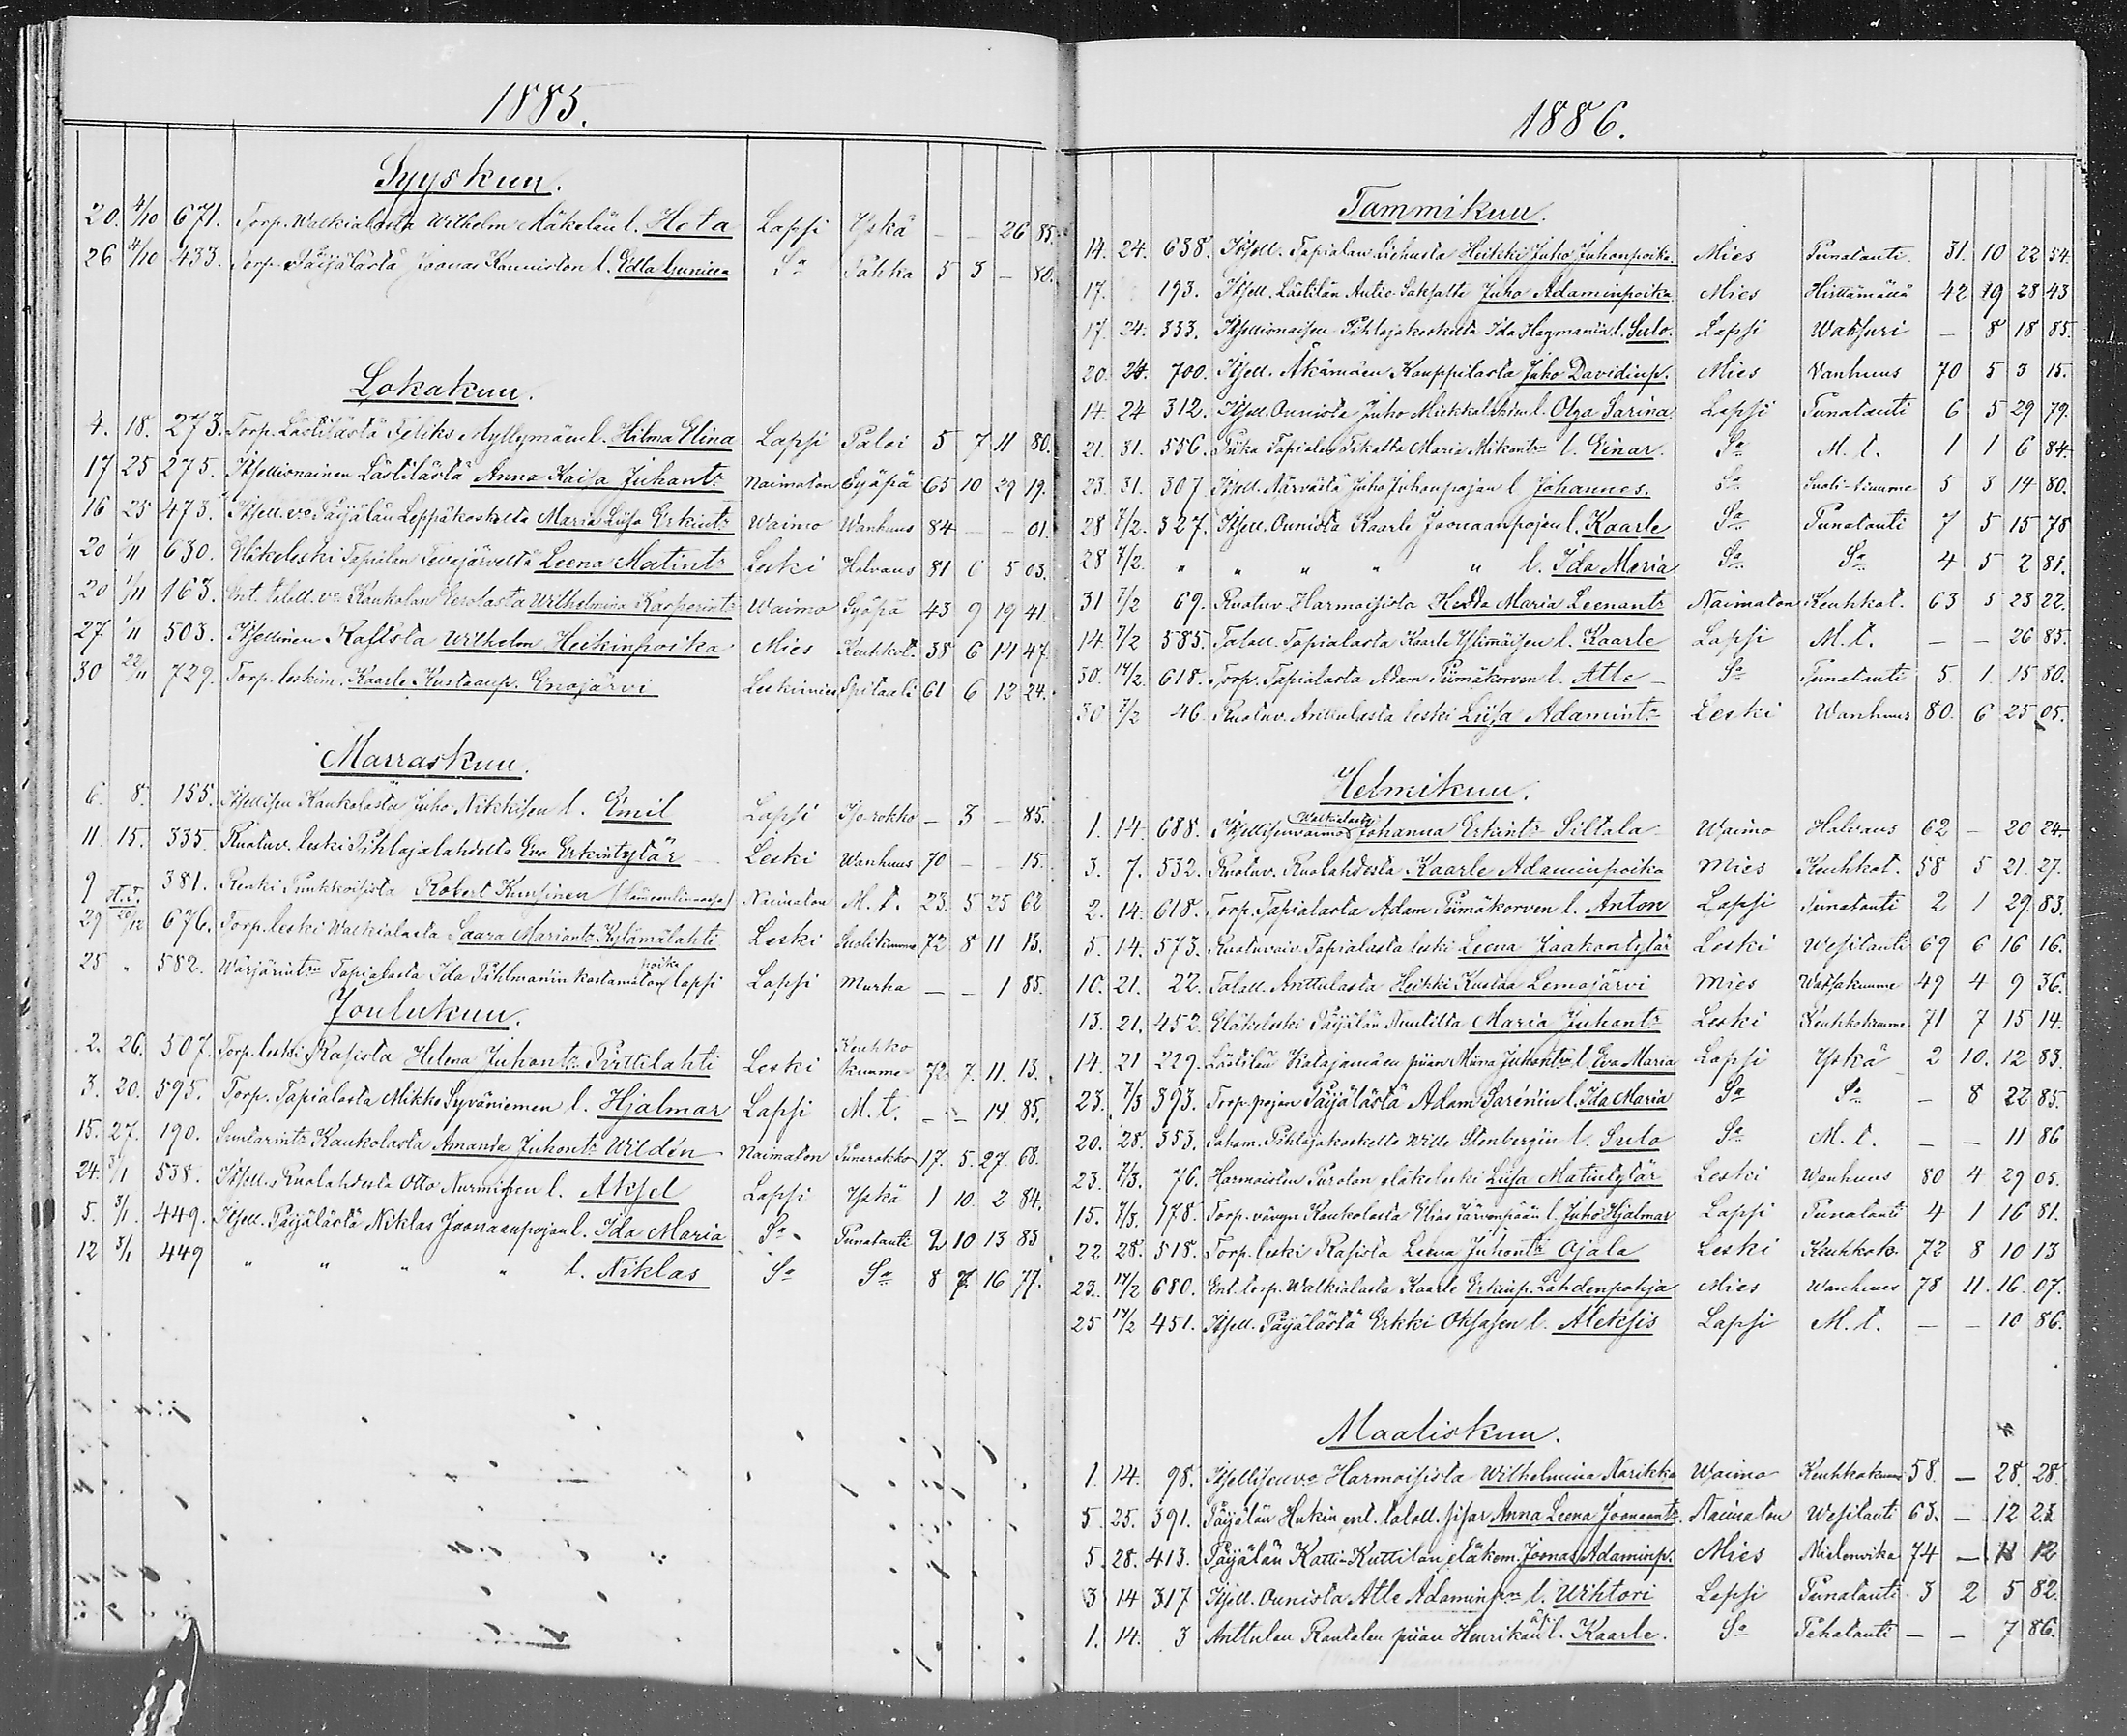 1885.
Syyskuu.
20. 4/10 671. Torp. Walkialasta Wilhelm Mäkelän l. Heta Lapsi Yskä — — 26 85.
26 4/10 433. Torp. Päijälästä Joonas Kanniston l. Edla Gunilla Sa 5 3 — 80.
Lokakuu.
4. 18. 273. Torp. Lästilästä Feliks Myllymäen l. Hilma Elina Lapsi Paloi 5 7 11 80.
17 25 275. Itsellisnainen Lästilästä Anna Kaisa Juhant: Naimaton Syöpä 65 10 29 19.
16 25 473. Itsell. vo Päijälän Leppäkoskelta Maria Liisa Erkint: Waimo Wanhuus 84 — — 01.
20 1/11 630. Eläkeleski Tapialan Tevajärveltä Leena Matint: Leski Halvaus 81 6 5 03.
20 1/11 163. Ent. taloll. vo Kaukolan Eerolasta Wilhelmina Kasperint: Waimo Syöpä 43 9 19 41.
27 1/11 503. Itsellinen Rasista Wilhelm Heikinpoika Mies Keuhkot. 38 6 14 47.
30 22/11 729. Torp. leskim. Kaarle Kustaap. Enojärvi Leskimies Spitaali 61 6 12 24.
Marraskuu.
6. 8. 155. Itsellisen Kaukolasta Juho Nikkisen l. Emil Lapsi Isorokko — 3 — 85.
11. 15. 335. Ruotuv. leski Pihlajalahdelta Eva Erkintytär Leski Wanhuus 70 — — 15.
9 381. Renki Punkkoisista Robert Kuusinen (Hämeenlinnassa) Naimaton M. t. 23. 5 25 62
29 20/12 676. Torp. leski Walkialasta Saara Mariant: Kylämälahti Leski Suolitumme 72 8 11 13.
25 " 582. Wärjärint: Tapialasta Ida Pihlmanin kastamaton poika lapsi Lapsi Murha — — 1 85.
Joulukuu.
2. 26. 507. Torp. leski Rasista Helena Juhant: Pirttilahti Leski Keuhkokuume 72. 7. 11. 13.
3. 20. 595. Torp. Tapialasta Mikko Syväniemen l. Hjalmar Lapsi M. t. — — 14. 85.
15. 27. 190. Suutarint: Kaukolasta Amanda Juhont: Wildén Naimaton Punarokko 17. 5. 27. 68.
24. 3/1 538. Itsell. Ruolahdesta Otto Nurmisen l. Aksel Lapsi Yskä 1 10. 2 84.
5. 3/1. 449. Itsell. Päijälästä Niklas Joonaanpojan l. Ida Maria Sa Punatauti 2 10 13 83
12 3/1 449 " " " " l. Niklas Sa Sa 8 7. 16 77.
1886.
Tammikuu.
14. 24. 638. Itsell. Tapialan Heikki Juho Juhonpoika. Mies Punatauti 31. 10 22 54.
17. 193. Itsell. Lästilän Juho Adaminpoika Mies Hirttämällä 42 19 28 43
17. 24. 333. Itsellisnaisen Pihlajakoskelta Ida Hagmanin l. Sulo. Lapsi Watsuri — 8 18 85.
20. 24. 700. Itsell. Äkämäen Kauppilasta Juho Davidinp. Mies Wanhuus 70 5 3 15.
14. 24 312. Itsell. Onnista Juho l. Olga Sarina Lapsi Punatauti 6 5 29 79.
21. 31. 556. Piika Tapialan Maria l. Einar. Sa M. t. 1 1 6 84.
23. 31. 307 Itsell. Närvästä Juho Juhonpojan l Johannes. Sa 5 3 14 80.
28 7/2. 327. Itsell. Onnista Kaarle Joonaanpojan l. Kaarle Sa Punatauti 7 5 15 78
28 7/2. " " " " " l. Ida Maria Sa Sa 4 5 2 81.
31 7/2 69. Ruotuv. Harmoisista Hedda Maria Leenant: Naimaton Keuhkot. 63 5 23 22.
14. 7/2 585. Taloll. Tapialasta Kaarle Ylimäisen l. Kaarle Lapsi M. t. — — 26 85.
30. 14/2. 618. Torp. Tapialasta Adam Piimäkorven l. Atle Sa Punatauti 5 1. 15 80.
30 7/2 46. Ruotuv. Anttulasta leski Liisa Adamint: Leski Wanhuus 80. 6 25 05.
Helmikuu.
1. 14. 688. Itsellisenvaimo Walkialasta Johanna Erkint: Siltala Waimo Halvaus 62 — 20 24
3. 7. 532. Ruotuv. Ruolahdesta Kaarle Adaminpoika Mies Keuhkot. 58 5 21. 27.
2. 14. 618. Torp. Tapialasta Adam Piimäkorven l. Anton Lapsi Punatauti 2 1 29. 83.
5. 14. 573. Ruotuvaiv. Tapialasta leski Leena Jaakontytär Leski Wesitauti 69 6 16 16.
10. 21. 22. Taloll. Anttulasta Heikki Kustaa Lemojärvi Mies Watsakuume 49 4 9 36.
13. 21. 452. Eläkeleski Päijälän Maria Juhont: Leski Keuhkokuume 71 7 15 14.
14. 21 229. Lästilän Katajamäen piian Miina Juhont: l. Eva Maria Lapsi Yskä 2 10. 12 83.
23. 7/3 393. Torp. pojan Päijälästä Adam Sarénin l. Ida Maria Sa Sa — 8 22 85.
20. 28. 353. Pihlajakoskelta Wille Stenbergin l. Sulo Sa M. t. — — 11 86
23. 7/3. 76. Harmoisten Parolan eläkeleski Liisa Matintytär Leski Wanhuus 80 4 29 05.
15. 7/3. 178. Torp. vävyn Kaukolasta Elias Järvenpään l. Juho Hjalmar Lapsi Punatauti 4 1 16 81.
22 28. 518. Torp. leski Rasista Leena Juhont: Ojala Leski Keuhkok. 72 8 10 13
23. 14/2 680. Ent. torp. Walkialasta Kaarle Erkinp. Lähdenpohja Mies Wanhuus 78 11. 16. 07.
25 14/2 451. Itsell. Päijälästä Erkki Oksasen l. Aleksis Lapsi M. t. — — 10 86.
Maaliskuu.
1. 14. 98. Itsellisenvo Harmoisista Wilhelmina Narikka Waimo Keuhkokuume 58. — 28. 28.
5. 25. 391. Päijälän Hukin ent. taloll. sisar Anna Leena Joonaant: Naimaton Wesitauti 63. — 12 23.
5. 28. 413. Päijälän Katti-Kuttilan eläkem. Joonas Adaminp. Mies Mielenvika 74 — 11 12
3 14 317 Itsell. Onnista Atle Adaminpn l. Wihtori Lapsi Punatauti 3 2 5 82.
1. 14. 3 Anttulan Rantalan piian Henrikan äp. l. Kaarle. Sa — — 7 86.